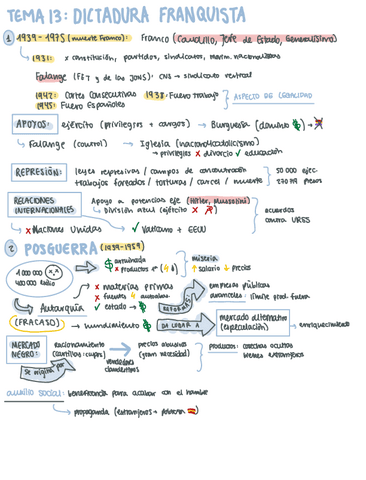 TEMA 13: DICTADURA FRANQUISTA
1 1939-1975 (muerte Franco): Franco (Caudillo, Jefe de Estado, Generalísimo)
→ 1931: x constitución, partidos, sindicatos, nacionalistas
Falange (FET y de las JONS). CNS → sindicato vertical
1942: Cortes Consecutivas 1938: Fuero Trabajo
1945: Fuero Españoles
ASPECTO DE LEGALIDAD
APOYOS: ejército (privilegios + cargos) → Burguesía (dominio $) →
→ Falange (control) → Iglesia (nacionalcatolicismo)
→ privilegios x divorcio ✓ educación
REPRESIÓN: leyes represivas / campos de concentración
trabajos forzados / torturas / carcel / muerte
50 000 ejec.
270 mil presos
RELACIONES INTERNACIONALES
Apoyo a potencias eje (Hitler, Mussolini)
→ División azul (ejército x
acuerdos contra URSS
→ x Naciones Unidas ✓ Vaticano + EEUU
2 POSGUERRA (1939-1959)
1 000 000
400 000 exilio
$ arruinada
x productos →
miseria
↑ salario ↓ precios
Autarquía
(FRACASO)
x materias primas
x fuentes
✓ estado → $
REFORMAS
empresas públicas
aranceles: límite prod. fuera
→ hundimiento $
DA LUGAR A
mercado alternativo (especulación)
→ enriquecimiento
MERCADO NEGRO:
racionamiento (cartillas: cupos)
→ precios abusivos (gran necesidad)
→ vendedores clandestinos
productos: cosechas ocultas
bienes extranjeros
se origina por
auxilio social: beneficencia para acabar con el hambre
→ propaganda (extranjeros + pobreza